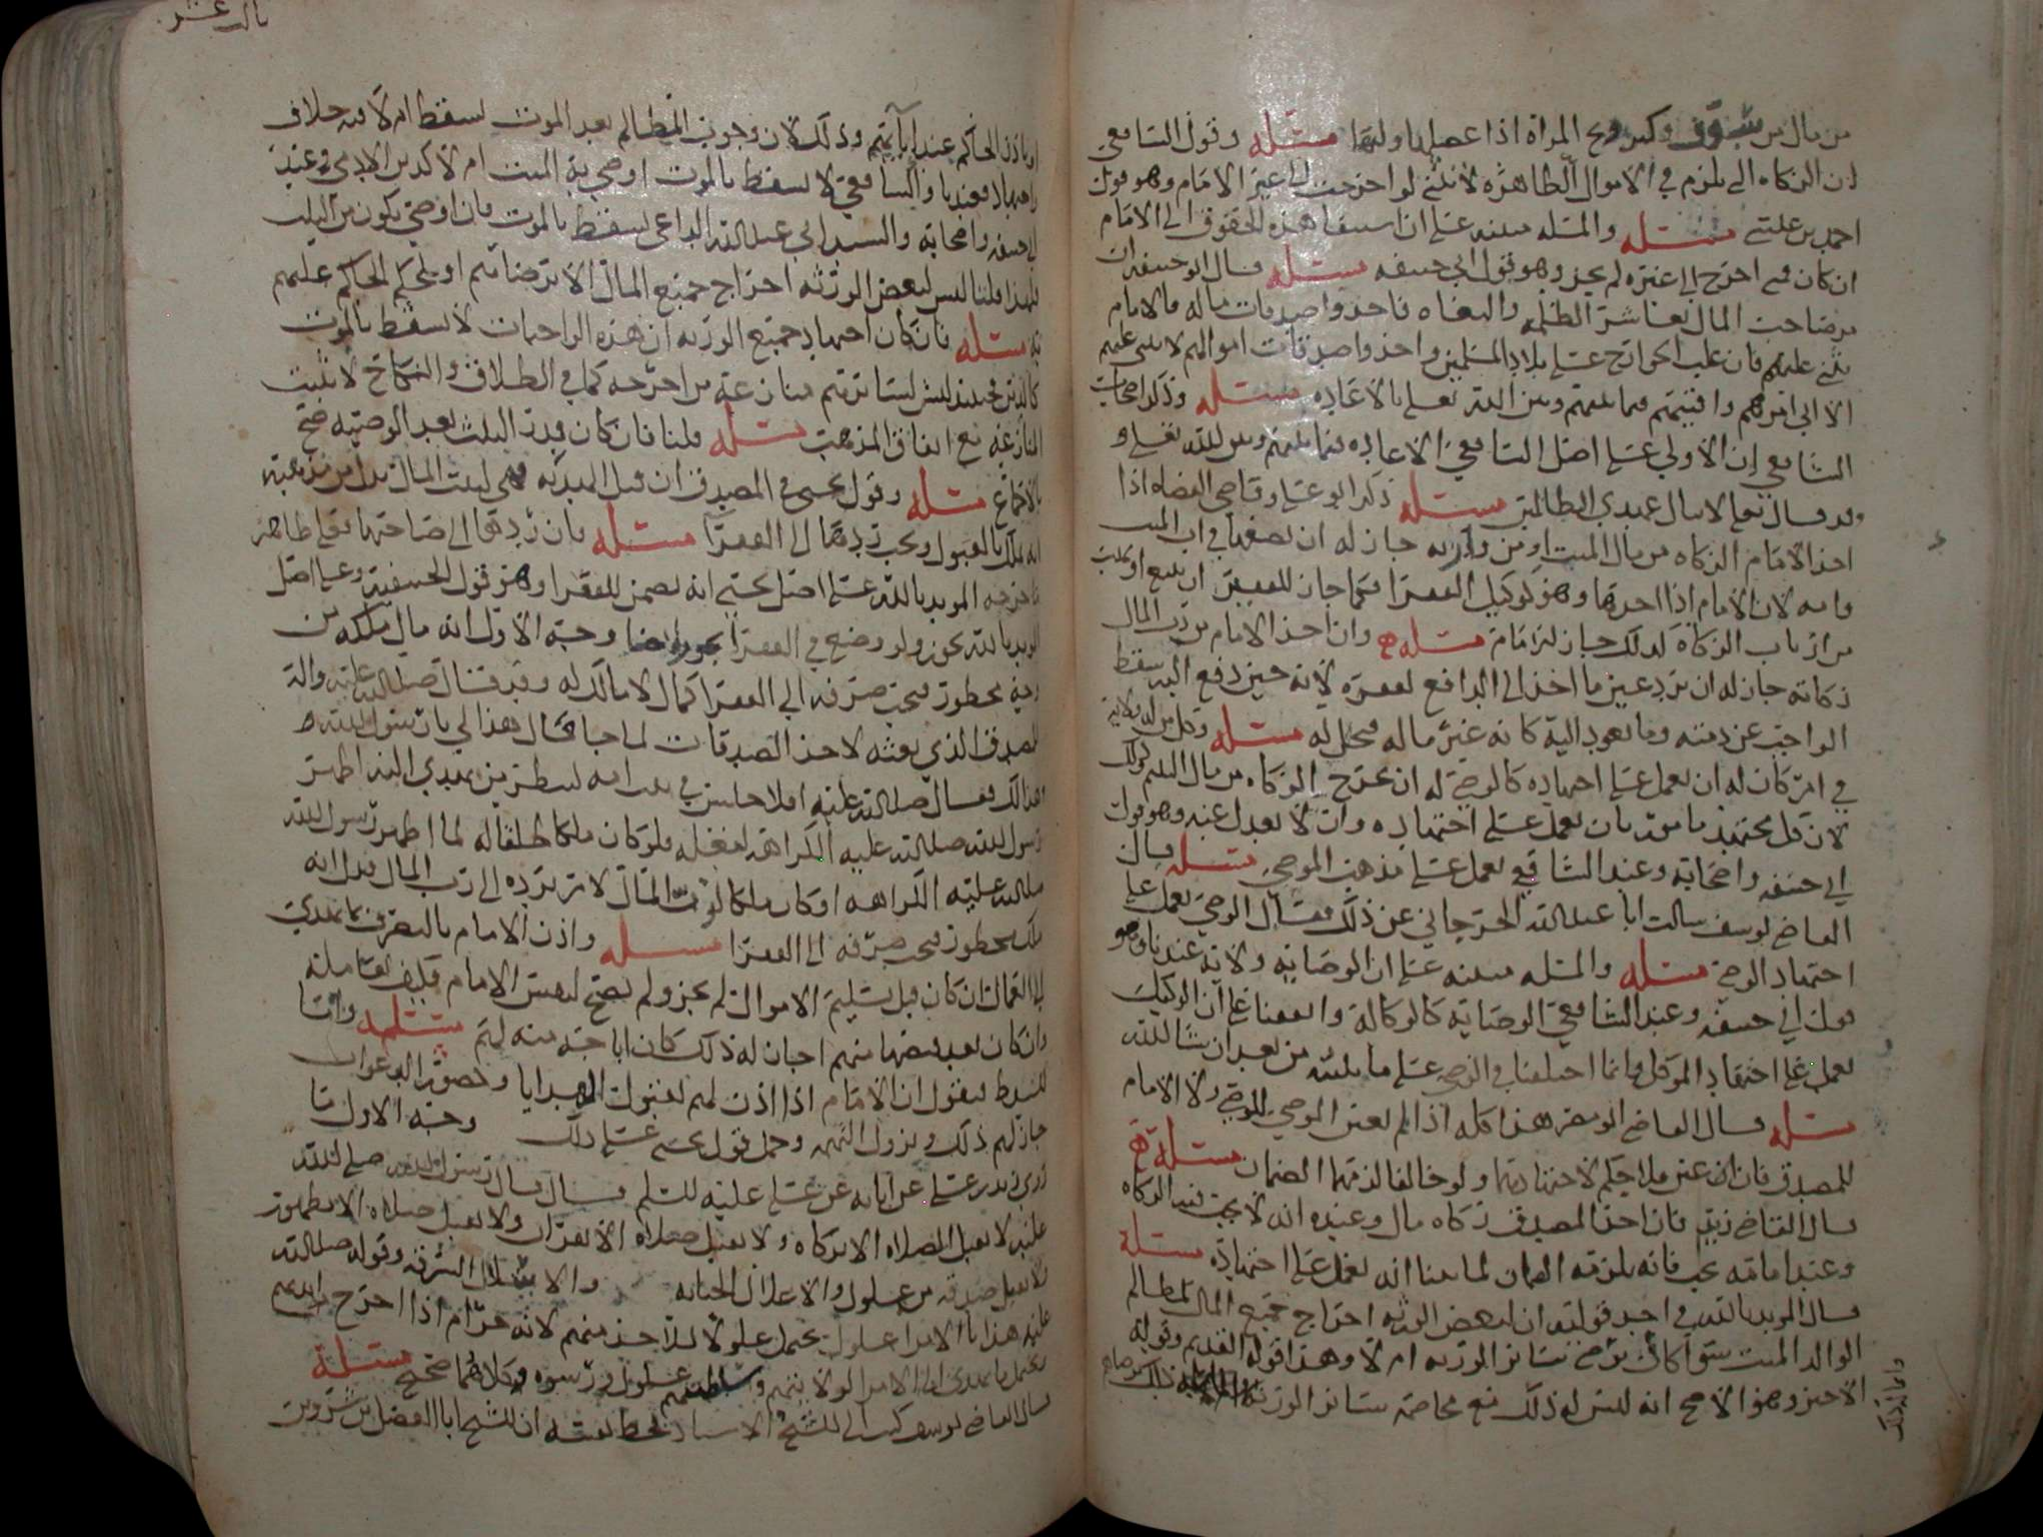 من مال من وكسر وبح المراة اذا عصاها وليها مسئله وقول الشافعي
ان الزكاه التي يلزم في الاموال الظاهره لا تثنى لو اخرجت الى غير الامام وهو قول
احمد بن علسى مسئله والمسله مبنيه على ان استيفا هذه الحقوق الى الامام
ان كان فمن اخرج الى غيره لم يجز وهو قول ابي حنيفه مسئله قال ابو حنيفه ان
مر صاحب المال بعاشر الظلمه والبغاه فاخذوا صدقات ماله فالامام
يثني عليهم فان غلب الخوارج على بلاد المسلمين واخذوا صدقات اموالهم لا يثنى عليهم
الا اني امرهم وافتيهم فيما بينهم وبين الله تعالى بالاعاده مسئله وذكر اصحاب
الشافعي ان الاولى على اصل الشافعي الاعاده فيما بينهم وبين الله تعالى و
قد قال تعالى لا ينال عهدي الظالمين مسئله ذكر ابو علي وقاضي القضاه اذا
اخذ الامام الزكاه من مال الميت او من وارثه جاز له ان يضعها في اب الميت
وامه لان الامام اذا اخذها وهو كوكيل الفقرا فكما جاز للفقير ان يبيع او يهب
من ارباب الزكاه كذلك جاز للامام مسئله وان اخذ الامام من رب المال
زكاته جاز له ان يرد عين ما اخذ الى الدافع لفقره لانه حين دفع اليه سقط
الواجب عن ذمته وما يعود اليه كانه غير ماله فيحل له مسئله وكل من له ولايه
في امر كان له ان يعمل على اجتهاده كالوصي له ان يخرج الزكاه من مال اليتيم وكذلك
لان كل مجتهد مامور بان يعمل على اجتهاده وان لا يعدل عنه وهو قول
ابي حنيفه واصحابه وعند الشافعي يعمل على مذهب الموصي مسئله قال
القاضي يوسف سالت ابا عبدالله الجرجاني عن ذلك فقال الوصي يعمل على
اجتهاد الوصي مسئله والمسله مبنيه على ان الوصايه ولايه عندنا وهو
قول ابي حنيفه وعند الشافعي الوصايه كالوكاله واتفقنا على ان الوكيل
يعمل على اجتهاد الموكل وانما اختلفنا في الوصي على ما نبينه من بعد ان شا الله
مسئله قال القاضي ابو مضر هذا كله اذا لم يعين الموصي للوصي ولا الامام
للمصدق فان عين فلا حكم لاجتهادهما ولو خالفا لزمهما الضمان مسئله
قال القاضي زيد فان اخذ المصدق زكاه مال وعنده انه لا يجب فيه الزكاه
وعند امامه يجب فانه يلزمه الضمان لما بينا انه يعمل على اجتهاده مسئله
قال المويد بالله في احد قوليه ان لبعض الورثه اخراج جميع المال لمظالم
الوالد الميت سوا كان برضى سائر الورثه ام لا وهذا قوله القديم وقوله
الاخير وهو الاصح انه ليس له ذلك مع مخاصمه سائر الورثه
او باذن الحاكم عند ابائهم وذلك لان وجوب المظالم بعد الموت يسقط ام لا فيه خلاف
واجتهاد فعندنا والشافعي لا يسقط بالموت اوصى به الميت ام لا كدين الادمي وعند
ابي حنيفه واصحابه والسيد ابي عبدالله الداعي يسقط بالموت فان اوصى يكون من الثلث
فلهذا قلنا ليس لبعض الورثه اخراج جميع المال الا برضائهم او بحكم الحاكم عليهم
به مسئله فان كان اجتهاد جميع الورثه ان هذه الواجبات لا يسقط بالموت
كالدين فحينئذ ليس لسائرهم منازعه من اخرجه كما في الطلاق والنكاح لا يثبت
المنازعه مع اتفاق المذهب مسئله قلنا فان كان قدر الثلث بعد الوصيه صح
بالاجماع مسئله وقول يحيى في المصدق ان قبل الهديه فهي لبيت المال يدل من مذهبه
انه ملك بالقبول ويجب ردها الى الفقرا مسئله فان ردها الى صاحبها فعلى ظاهر
ما خرجه المويد بالله على اصل يحيى انه يضمن للفقرا وهو قول الحنفيه وعلى اصل
المويد بالله يجوز ولو وضع في الفقرا وجه الاول انه مال ملكه من
وجه محظور فيجب صرفه الى الفقرا كمال لا مالك له وقد قال صلى الله عليه واله
للمصدق الذي بعثه لاخذ الصدقات لما جا قال هذا لي يا رسول الله
وهذا لك فقال صلى الله عليه افلا جلس في بيت امه لينظر من يهدي اليه اظهر
رسول الله صلى الله عليه الكراهه لفعله ولو كان ملكا طلقا له لما اظهر رسول الله
صلى الله عليه الكراهه او كان ملكا لرب المال لامر برده الى رب المال فدل انه
ملك محظور فيجب صرفه الى الفقرا مسئله واذن الامام بالتصرف بما يهدى
الى العمال ان كان قبل تسليم الاموال لم يجز ولم يصح ليس الامام
وان كان بعد قبضها منهم اجاز له ذلك كان اباحه منه لهم مسئله واما
الشرط فنقول ان الامام اذا اذن لهم لقبول الهدايا وحضور الدعوات
جاز لهم ذلك ويزول التهمه وحمل قول يحيى على ذلك وجه الاول ما
روى زيد بن علي عن ابائه عن علي عليه السلم قال قال رسول الله صلى الله
عليه لا يقبل الصلاه الا بزكاه ولا يقبل صلاه الا بقران ولا يقبل صلاه الا بطهور
ولا يقبل صدقه من غلول والاغلال الخيانه والاسلال السرقه وقوله صلى الله
عليه هدايا الامرا غلول يحتمل غلولا للاخذ منهم لانه حرام اذا اخرج
يحتمل ما يهدى الى الامرا لولايتهم وسلطنتهم غلول ورشوه وكلاهما صحيح مسئله
قال القاضي يوسف كتب الى الشيخ الاستاذ بخط يده ان الشيخ ابا الفضل بن شروين